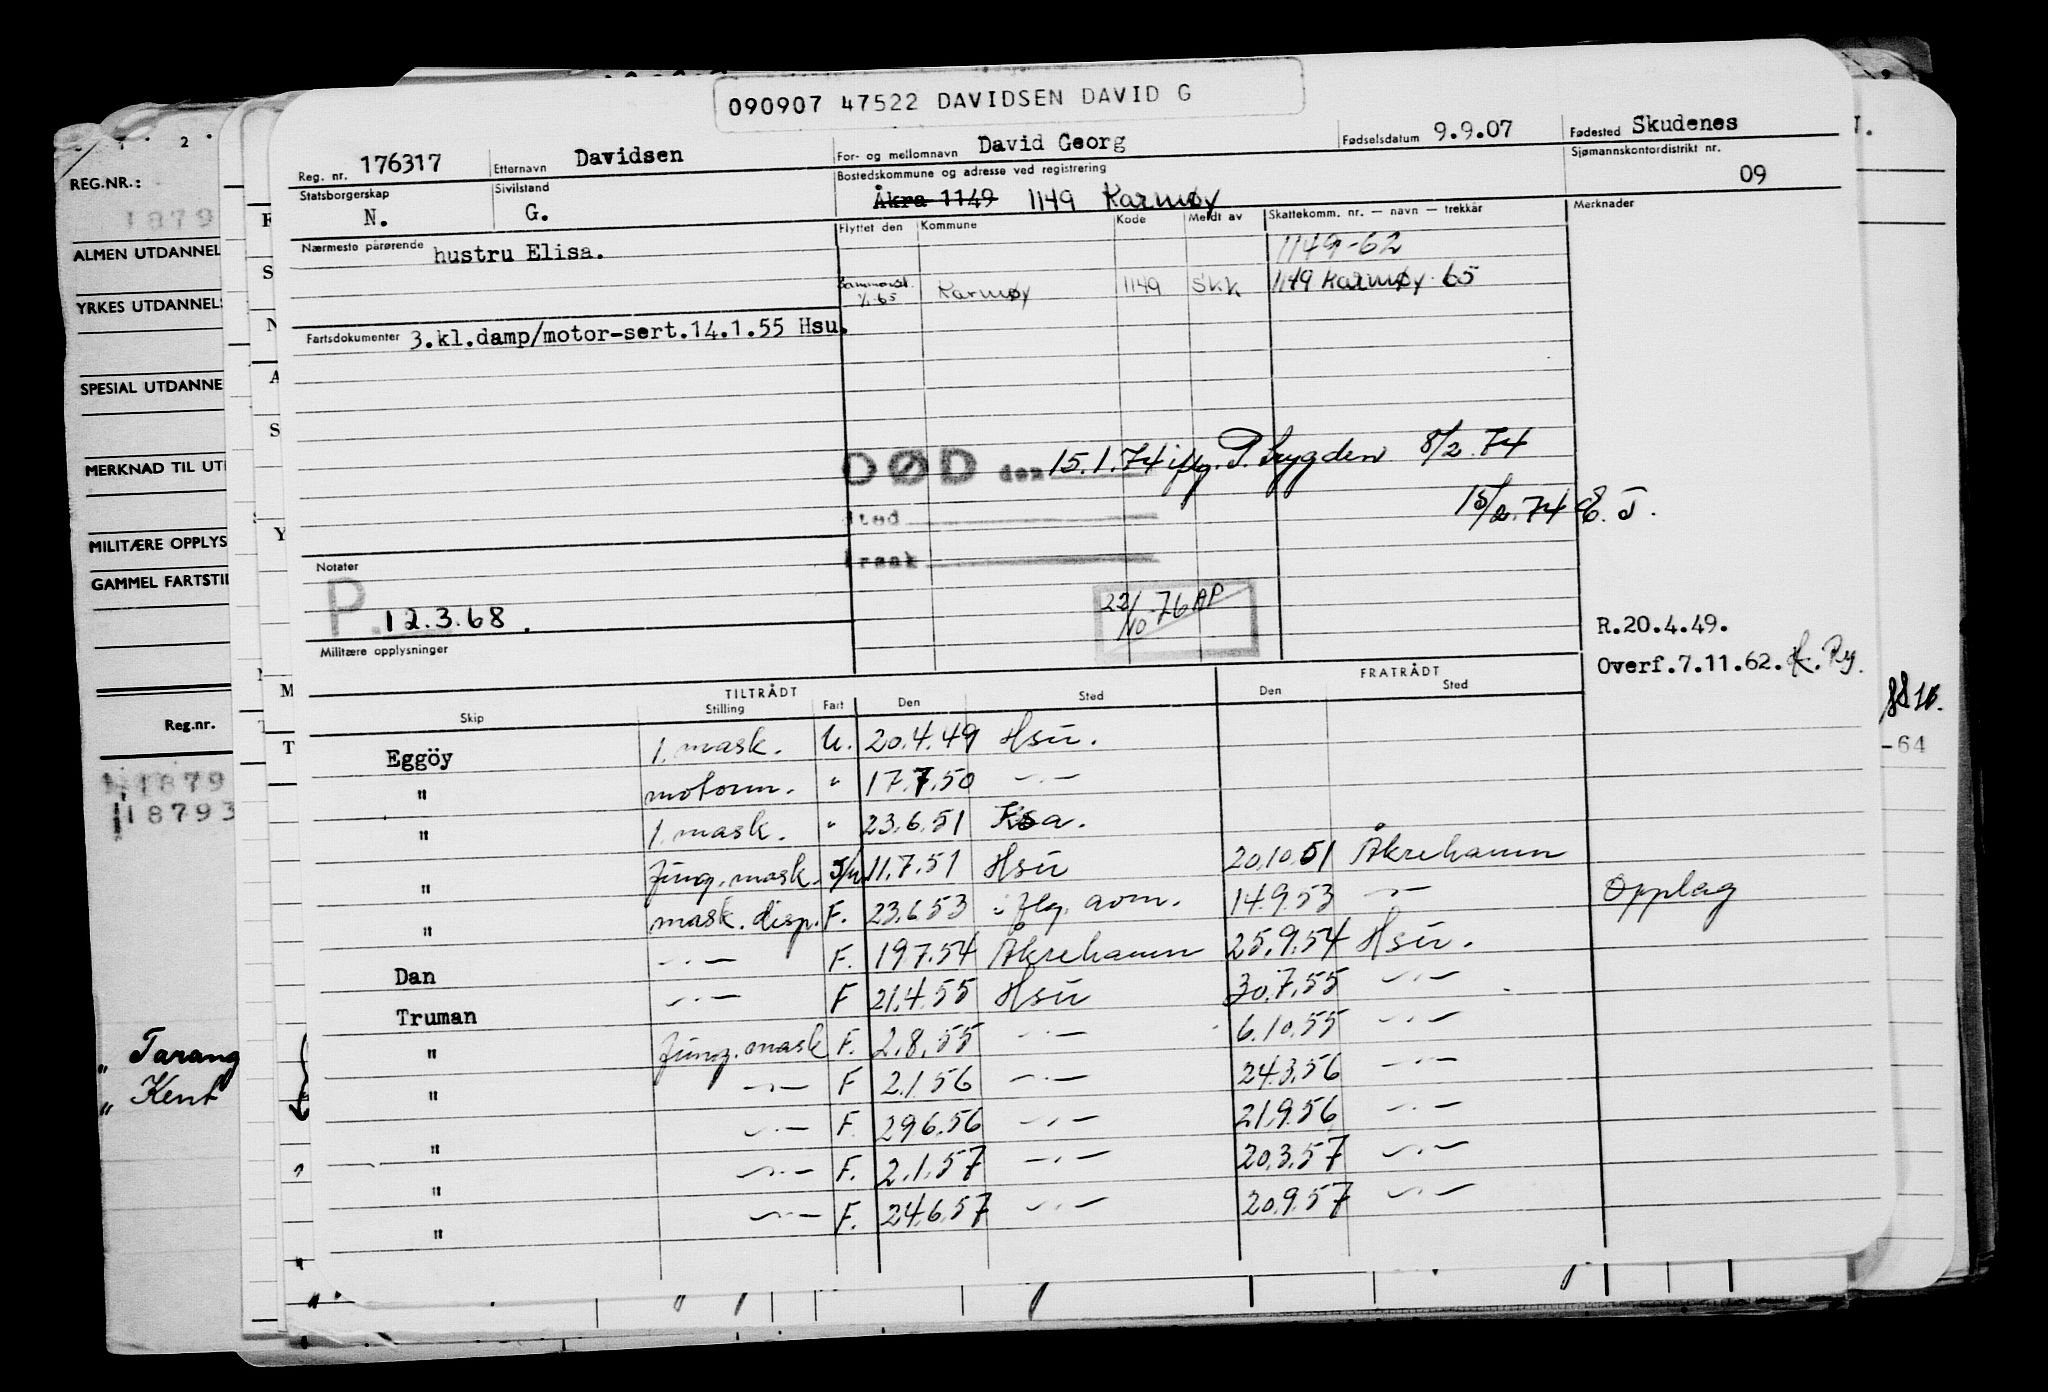 090907 47522 DAVIDSEN DAVID G
Reg. nr. 176317 Etternavn Davidsen For- og mellomnavn David Georg Fødselsdatum 9.9.07 Fødested Skudenes
Statsborgerskap N. Sivilstand G. Bostedskommune og adresse ved registrering Åkra 1149 1149 Karmøy Sjømannskontordistrikt nr. 09
Nærmeste pårørende hustru Elisa. Flyttet den Kommune Kode Meldt av Skattekomm. nr. — navn — trekkår Merknader
1149-62
1/1-65 Karmøy 1149 Skk 1149 Karmøy 65
Fartsdokumenter 3.kl.damp/motor-sert.14.1.55 Hsu.
DØD den 15.1.74 iflg. P. 8/2.74
15/2.74 E. J.
Sted
Årsak
Notater
P. 12.3.68.
22/10-76 AP
Militære opplysninger
R.20.4.49.
Overf.7.11.62.
TILTRÅDT FRATRÅDT
Skip Stilling Fart Den Sted Den Sted
Eggöy 1. mask. U. 20.4.49 Hsu.
" motorm. " 17.7.50 —·—
" 1. mask. " 23.6.51 Ksa.
" fung. mask. S/U 11.7.51 Hsu 20.10.51 Åkrehamn
" mask. disp. F. 23.6.53 iflg. avm. 14.9.53 —·— Opplag
Dan —·— F. 19.7.54 Åkrehamn 25.9.54 Hsu.
Truman —·— F 21.4.55 Hsu 30.7.55 —·—
" fung. mask F. 2.8.55 —·— 6.10.55 —·—
" —·— F 2.1.56 —·— 24.3.56 —·—
" —·— F. 29.6.56 —·— 21.9.56 —·—
" —·— F. 2.1.57 —·— 20.3.57 —·—
" —·— F. 24.6.57 —·— 20.9.57 —·—
REG.NR.:
1879
ALMEN UTDANNEL
YRKES UTDANNELS
SPESIAL UTDANNE
MERKNAD TIL UT
MILITÆRE OPPLYS
GAMMEL FARTSTI
Reg.nr.
1879
18793
" Tarang
" Kent
-64